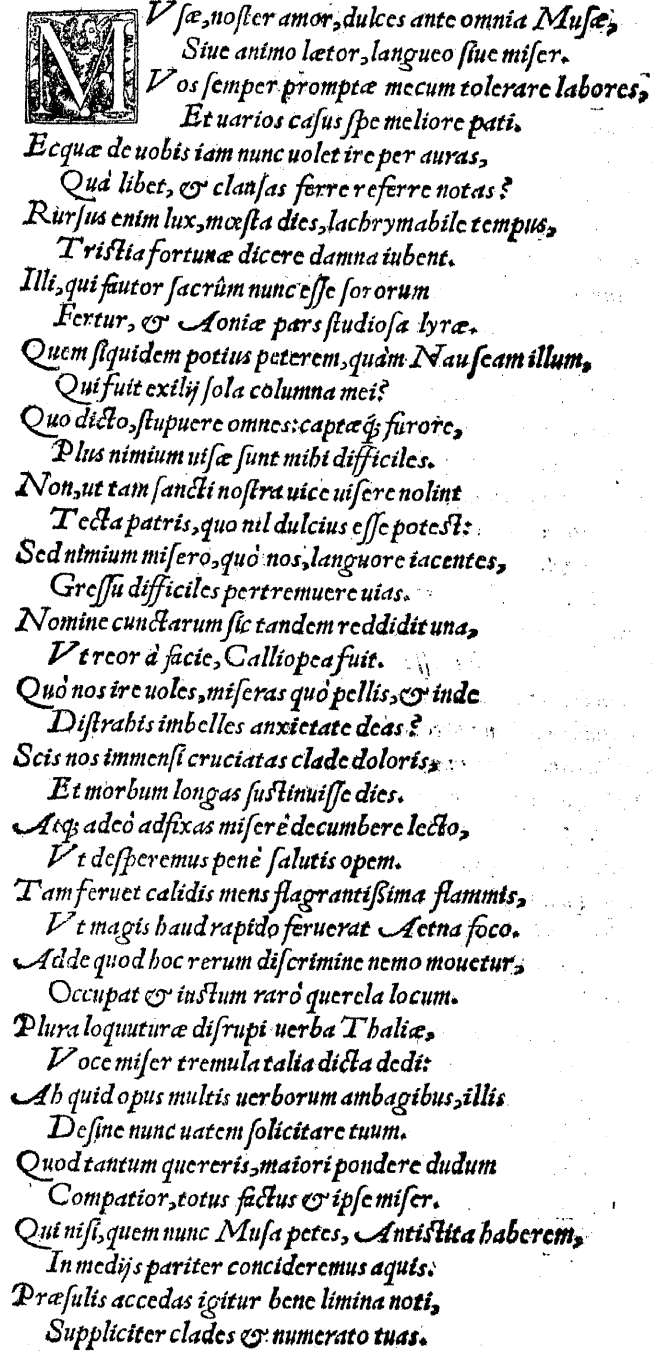 MVſæ, noſter amor, dulces ante omnia Muſæ,
Siue animo lætor, langueo ſiue miſer.
Vos ſemper promptæ mecum tolerare labores,
Et uarios caſus ſpe meliore pati.
Ecquæ de uobis iam nunc uolet ire per auras,
Quà libet, & clauſas ferre referre notas?
Rurſus enim lux, mœſta dies, lachrymabile tempus,
Triſtia fortunæ dicere damna iubent.
Illi, qui fautor ſacrûm nunc eſſe ſororum
Fertur, & Aoniæ pars ſtudioſa lyræ.
Quem ſiquidem potius peterem, quàm Nauſeam illum,
Qui fuit exilij ſola columna mei?
Quo dicto, ſtupuere omnes: captæq́; furore,
Plus nimium uiſæ ſunt mihi difficiles.
Non, ut tam ſancti noſtra uice uiſere nolint
Tecta patris, quo nil dulcius eſſe poteſt:
Sed nimium miſero, quò nos, languore iacentes,
Greſſu difficiles pertremuere uias.
Nomine cunctarum ſic tandem reddidit una,
Vt reor à facie, Calliopea fuit.
Quò nos ire uoles, miſeras quò pellis, & inde
Diſtrahis imbelles anxietate deas?
Scis nos immenſi cruciatas clade doloris,
Et morbum longas ſuſtinuiſſe dies.
Atq; adeò adfixas miſerè decumbere lecto,
Vt deſperemus penè ſalutis opem.
Tam feruet calidis mens flagrantiſſima flammis,
Vt magis haud rapido feruerat Aetna foco.
Adde quod hoc rerum diſcrimine nemo mouetur,
Occupat & iuſtum rarò querela locum.
Plura loquuturæ diſrupi uerba Thaliæ,
Voce miſer tremula talia dicta dedi:
Ah quid opus multis uerborum ambagibus, illis
Deſine nunc uatem ſolicitare tuum.
Quod tantum quereris, maiori pondere dudum
Compatior, totus factus & ipſe miſer.
Qui niſi, quem nunc Muſa petes, Antiſtita haberem,
In medijs pariter concideremus aquis:
Præſulis accedas igitur bene limina noti,
Suppliciter clades & numerato tuas.